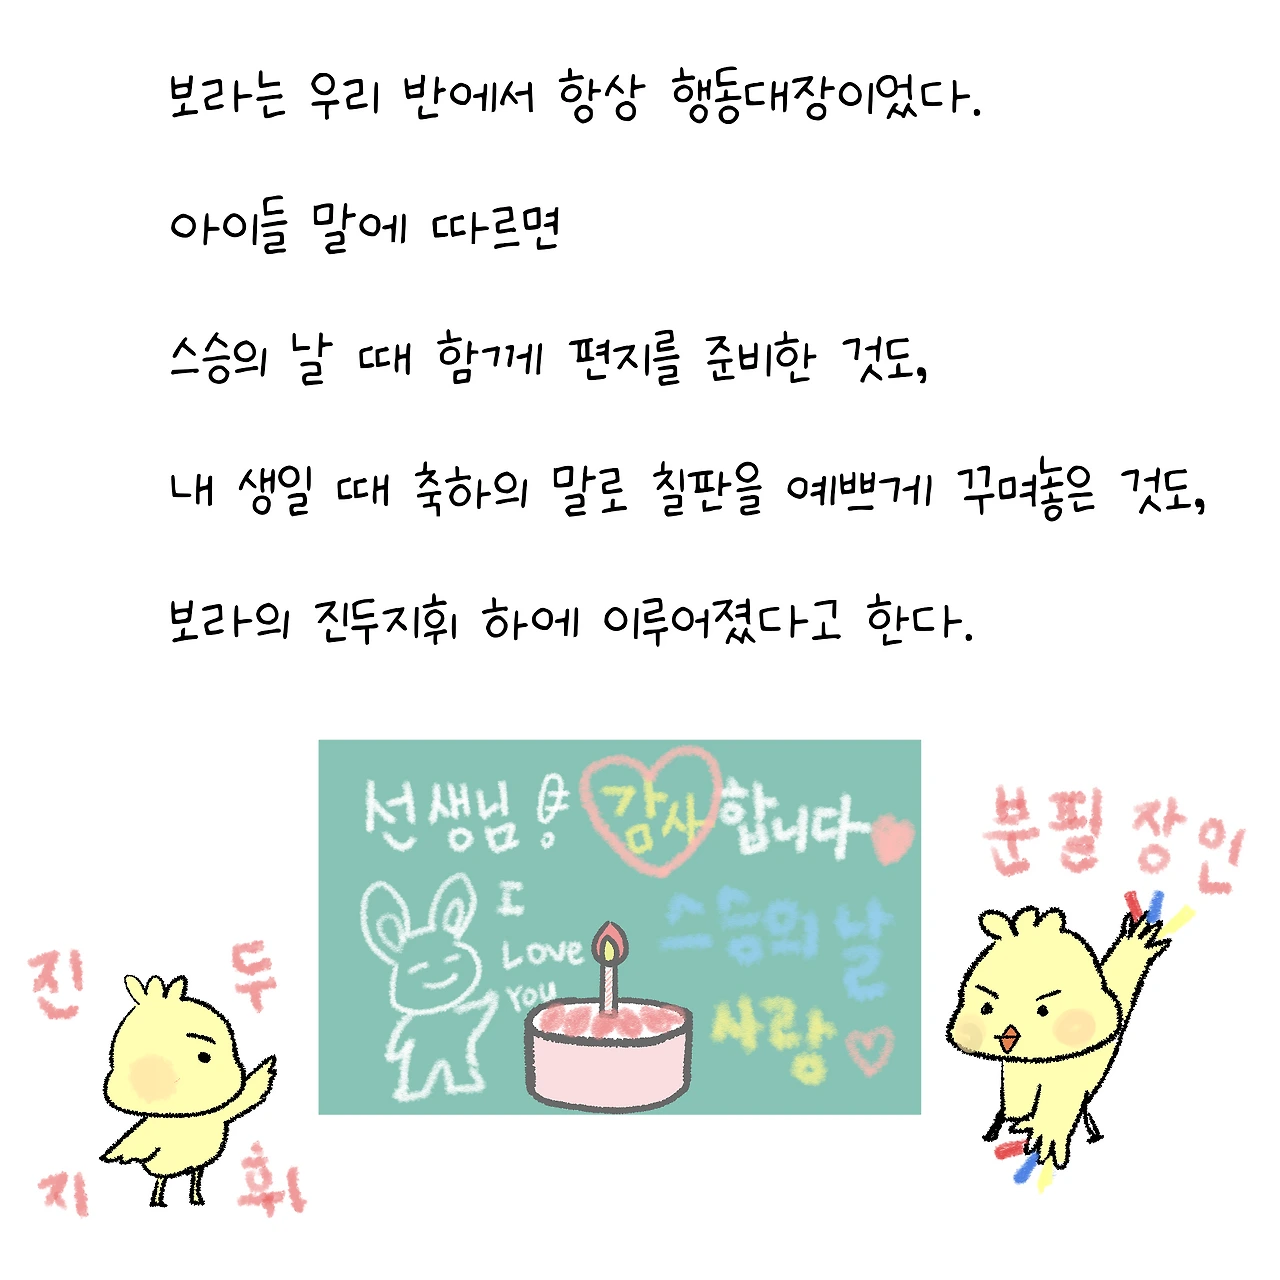 보라는 우리 반에서 항상 행동대장이었다.
아이들 말에 따르면
스승의 날 때 함께 편지를 준비한 것도,
내 생일 때 축하의 말로 칠판을 예쁘게 꾸며놓은 것도,
보라의 진두지휘 하에 이루어졌다고 한다.
선생님 감사합니다
I
LOVE
YOU
스승의 날
사랑
분필 장인
진두
지휘